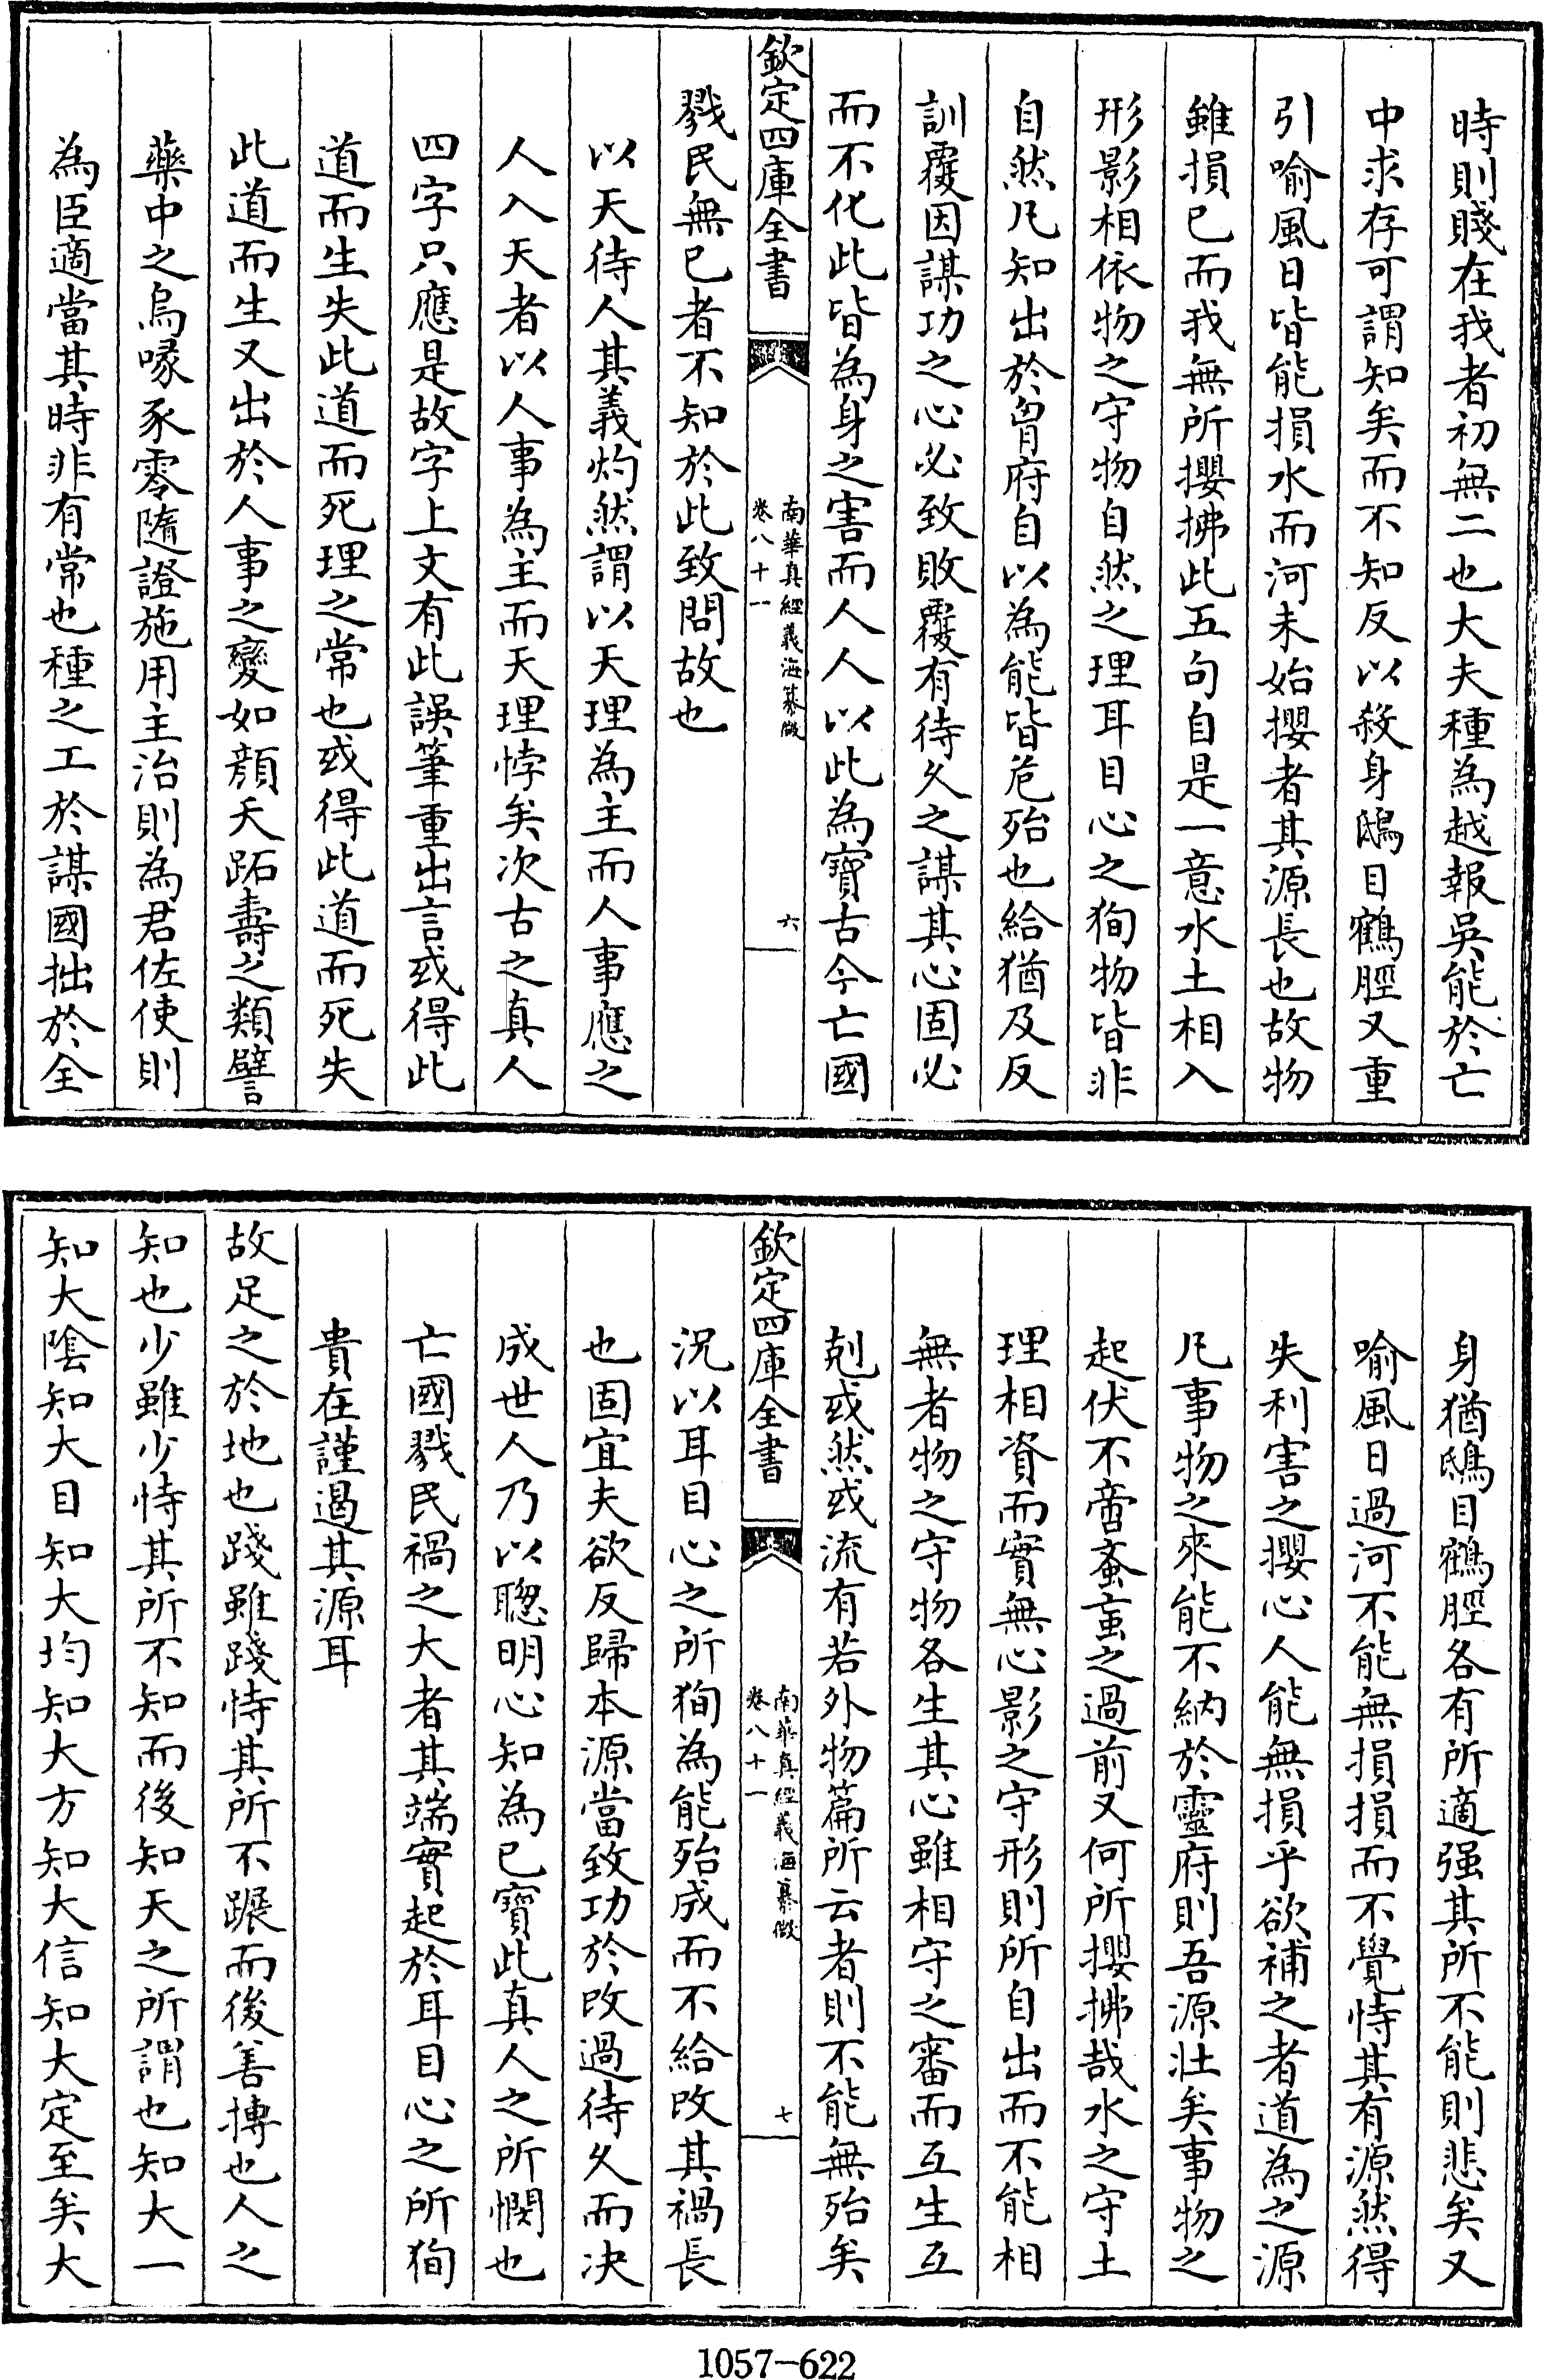 時則賤在我者初無二也大夫種為越報吳能於亡
中求存可謂知矣而不知反以殺身鴟目鶴脛又重
引喻風日皆能損水而河未始攖者其源長也故物
雖損已而我無所攖拂此五句自是一意水土相入
形影相依物之守物自然之理耳目心之狥物皆非
自然凡知出於胷府自以為能皆危殆也給猶及反
訓覆因謀功之心必致敗覆有待久之謀其心固必
而不化此皆為身之害而人人以此為寶古今亡國
欽定四庫全書
南華真經義海纂微
卷八十一
六
戮民無已者不知於此致問故也
以天待人其義灼然謂以天理為主而人事應之
人入天者以人事為主而天理悖矣次古之真人
四字只應是故字上文有此誤筆重出言或得此
道而生失此道而死理之常也或得此道而死失
此道而生又出於人事之變如顔夭跖壽之類譬
藥中之烏喙豕零隨證施用主治則為君佐使則
為臣適當其時非有常也種之工於謀國拙於全
身猶鴟目鶴脛各有所適强其所不能則悲矣又
喻風日過河不能無損損而不覺恃其有源然得
失利害之攖心人能無損乎欲補之者道為之源
凡事物之來能不納於靈府則吾源壯矣事物之
起伏不啻蚉䖟之過前又何所攖拂哉水之守土
理相資而實無心影之守形則所自出而不能相
無者物之守物各生其心雖相守之審而互生互
剋或然或流有若外物篇所云者則不能無殆矣
欽定四庫全書
南華真經義海纂微
卷八十一
七
況以耳目心之所狥為能殆成而不給改其禍長
也固宜夫欲反歸本源當致功於改過待久而決
成世人乃以聰明心知為已寶此真人之所憫也
亡國戮民禍之大者其端實起於耳目心之所狥
貴在謹遏其源耳
故足之於地也踐雖踐恃其所不蹍而後善搏也人之
知也少雖少恃其所不知而後知天之所謂也知大一
知大陰知大目知大均知大方知大信知大定至矣大
1057-622